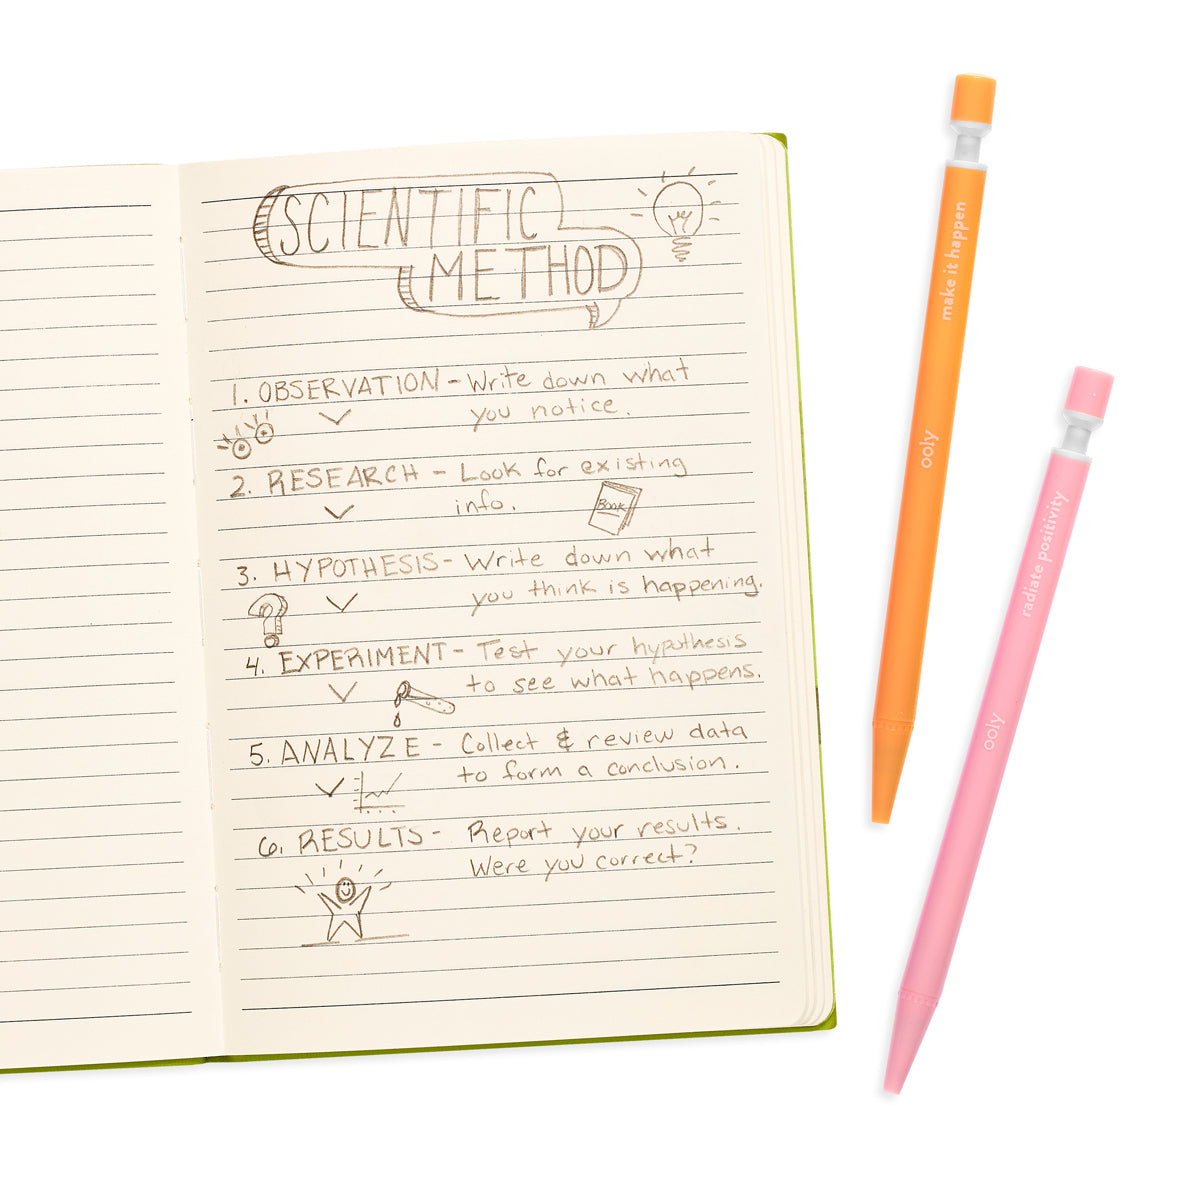 SCIENTIFIC
METHOD
1. OBSERVATION - Write down what
you notice.
2. RESEARCH - Look for existing
info.
Book
3. HYPOTHESIS - Write down what
you think is happening.
4. EXPERIMENT - Test your hypothesis
to see what happens.
5. ANALYZE - Collect & review data
to form a conclusion.
6. RESULTS - Report your results.
Were you correct?
make it happen
ooly
radiate positivity
ooly